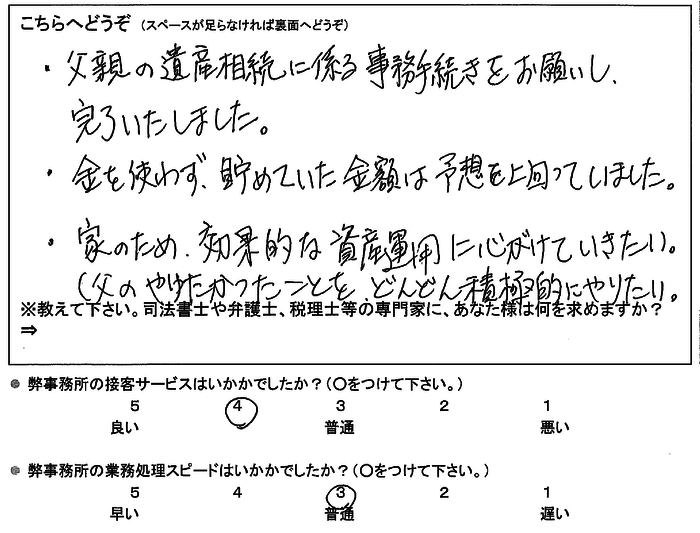 こちらへどうぞ（スペースが足らなければ裏面へどうぞ）
・父親の遺産相続に係る事務手続きをお願いし、
完了いたしました。
・金を使わず、貯めていた金額は予想を上回っていました。
・家のため、効果的な資産運用に心がけていきたい。
（父のやりたかったことを、どんどん積極的にやりたい。
※教えて下さい。司法書士や弁護士、税理士等の専門家に、あなた様は何を求めますか？
⇒
● 弊事務所の接客サービスはいかかでしたか？（〇をつけて下さい。）
5 4 3 2 1
良い 普通 悪い
● 弊事務所の業務処理スピードはいかかでしたか？（〇をつけて下さい。）
5 4 3 2 1
早い 普通 遅い